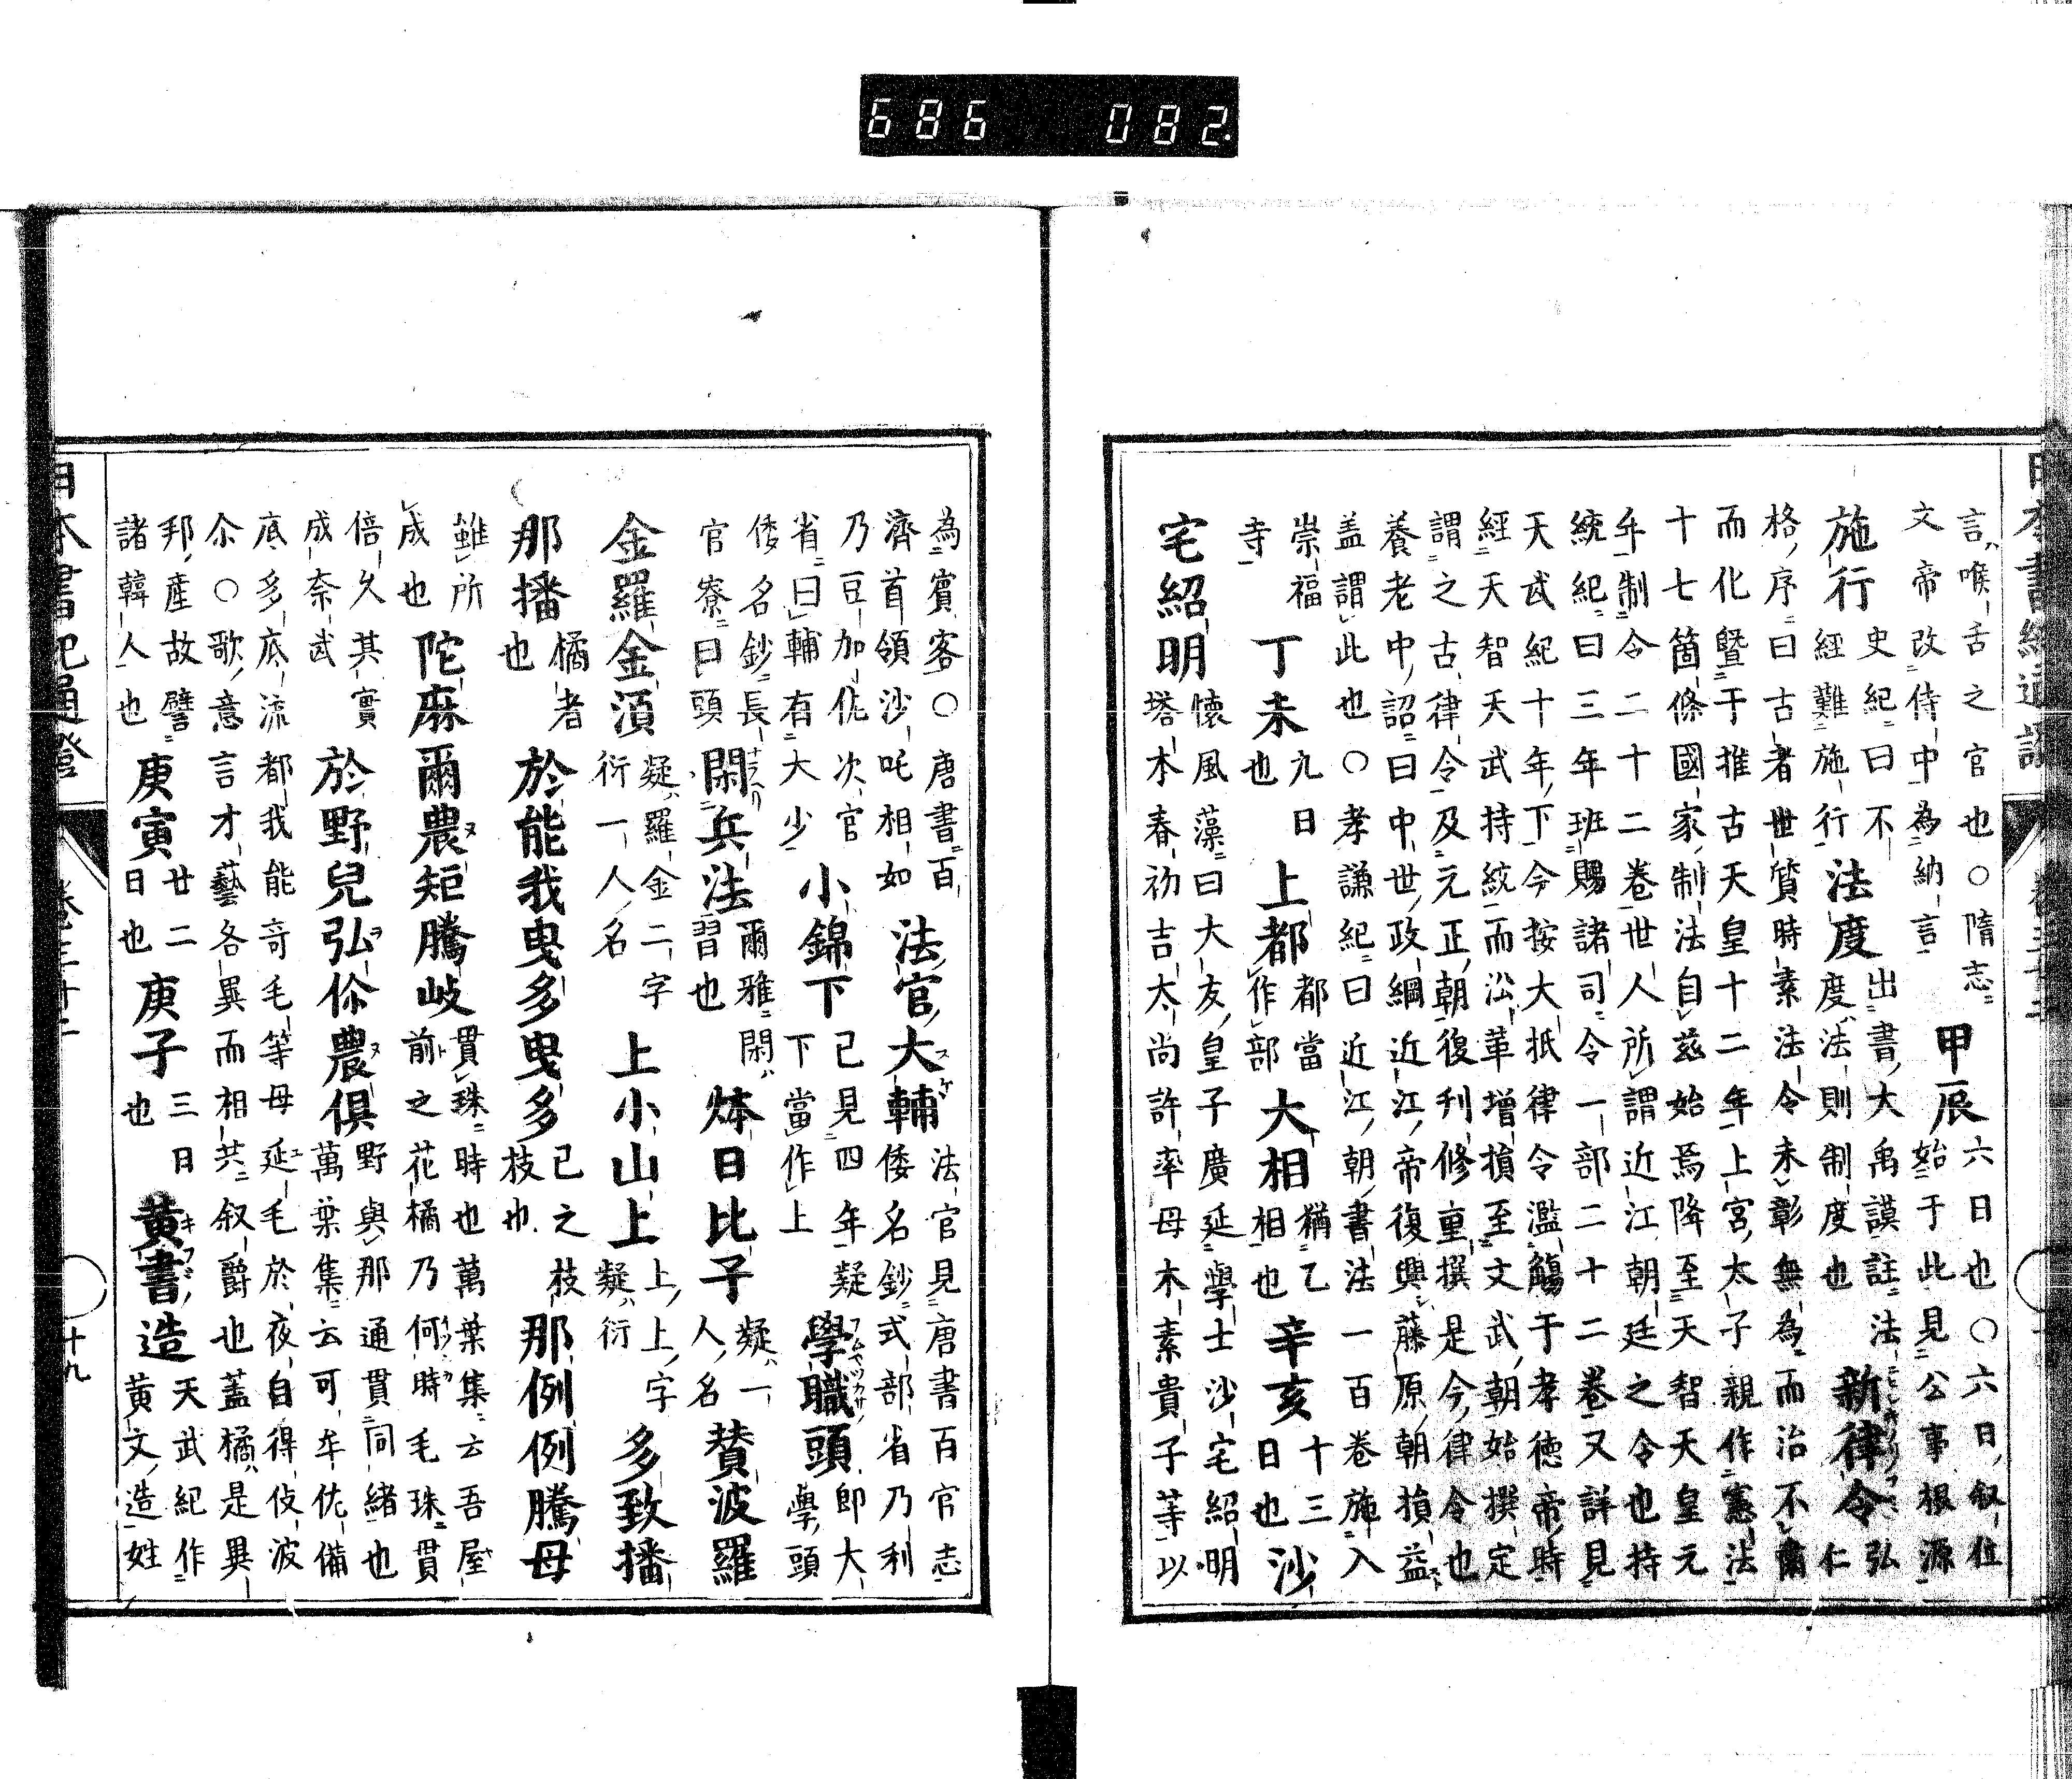 言喉舌之官也○隋志文帝改侍中為納言 甲辰 六日也○六日叙位始于此見公事根源
施行 史紀曰不經難施行 法度 出書大禹謨註法度法則制度也 新律令 弘仁
格序曰古者世質時素法令未彰無為而治不肅
而化曁于推古天皇十二年上宮太子親作憲法
十七箇條國家制法自茲始焉降至天智天皇元
年制令二十二卷世人所謂近江朝廷之令也持
統紀曰三年班賜諸司令一部二十二卷又詳見
天武紀十年下今按大抵律令濫觴于孝徳帝時
經天智天武持統而沿革増損至文武朝始撰定
謂之古律令及元正朝復刊修重撰是今律令也
養老中詔曰中世政綱近江帝復興藤原朝損益
盖謂此也○孝謙紀曰近江朝書法一百卷施入
崇福寺 丁未 九日也 上都 都當作部 大相 猶乙相也 辛亥 十三日也 沙
宅紹明 懷風藻曰大友皇子廣延學士沙宅紹明塔本春初吉太尚許率母木素貴子等以
為賓客○唐書百濟首領沙吒相如 法官大輔 法官見唐書百官志倭名鈔式部省乃利
乃豆加佐次官省曰輔有大少 小錦下 已見四年疑下當作上 學職頭 即大學頭
倭名鈔長官寮曰頭 閑兵法 爾雅閑習也 㶱日比子 疑一人名 賛波羅
金羅金須 疑羅金二字衍一人名 上小山上 上上字疑衍 多致播
那播 橘者也 於能我曳多曳多 已之枝枝也 那例例騰母
雖所成也 陀麻爾農矩騰岐 貫珠時也萬葉集云吾屋前之花橘乃何時毛珠貫
倍久其實成奈武 於野兒弘儞農俱 野與那通貫同緒也萬葉集云可牟佐備
底多底流都我能奇毛等母延毛於夜自得伎波
尒○歌意言才藝各異而相共叙爵也盖橘是異
邦産故譬諸韓人也 庚寅 廿二日也 庚子 三日也 黄書造 天武紀作黄文造姓
日本書紀通證
十九
686 082